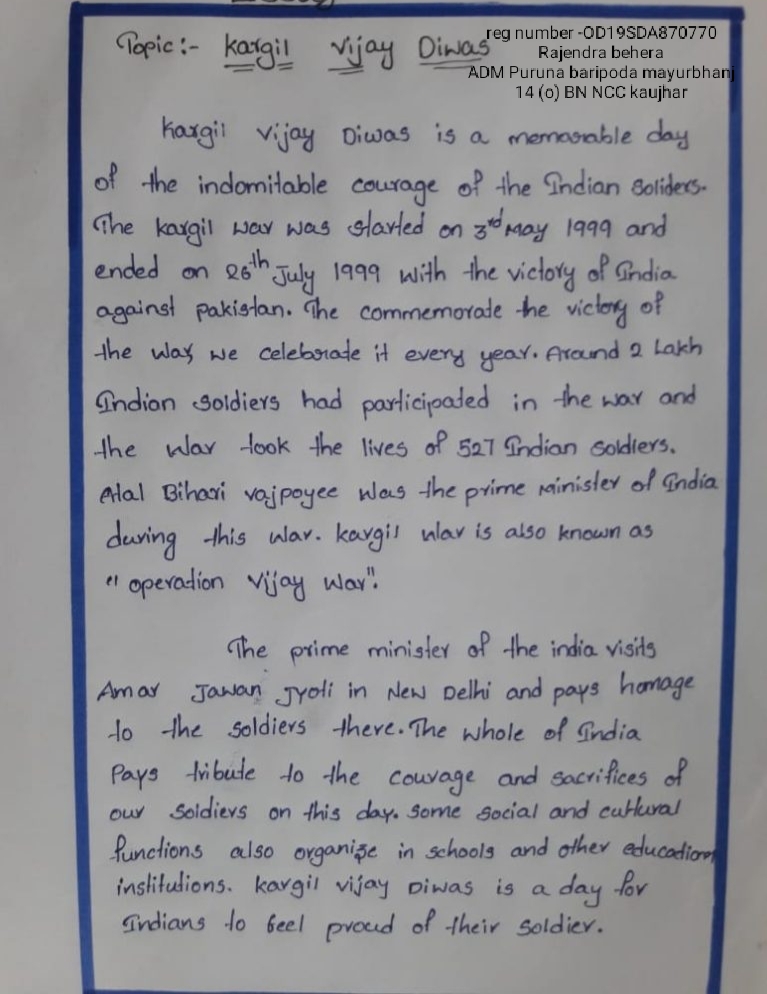 Topic :- Kargil Vijay Diwas
reg number -OD19SDA870770
Rajendra behera
ADM Puruna baripoda mayurbhanj
14 (o) BN NCC kaujhar
Kargil Vijay Diwas is a memorable day
of the indomitable courage of the Indian Soliders.
The Kargil war was started on 3rd May 1999 and
ended on 26th July 1999 with the victory of India
against pakistan. The commemorate the victory of
the war, we celebrate it every year. Around 2 Lakh
Indian soldiers had participated in the war and
the war took the lives of 527 Indian soldiers.
Atal Bihari vajpoyee was the prime Minister of India
during this war. Kargil war is also known as
" operation Vijay War".
The prime minister of the india visits
Amar Jawan Jyoti in New Delhi and pays homage
to the soldiers there. The whole of India
Pays tribute to the courage and sacrifices of
our soldiers on this day. Some social and cultural
functions also organize in schools and other education
institutions. Kargil vijay Diwas is a day for
Indians to feel proud of their soldier.